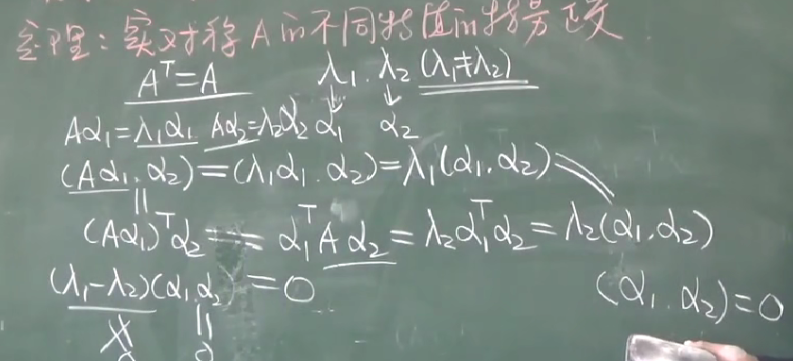 定理：实对称A的不同特值的特量正交
Aᵀ=A λ₁. λ₂ (λ₁≠λ₂)
↓ ↓
Aα₁=λ₁α₁ Aα₂=λ₂α₂ α₁ α₂
(Aα₁,α₂)=(λ₁α₁.α₂)=λ₁(α₁.α₂)
||
(Aα₁)ᵀα₂ = α₁ᵀAα₂=λ₂α₁ᵀα₂=λ₂(α₁.α₂)
(λ₁-λ₂)(α₁.α₂)=0 (α₁.α₂)=0
|| ||
0 0